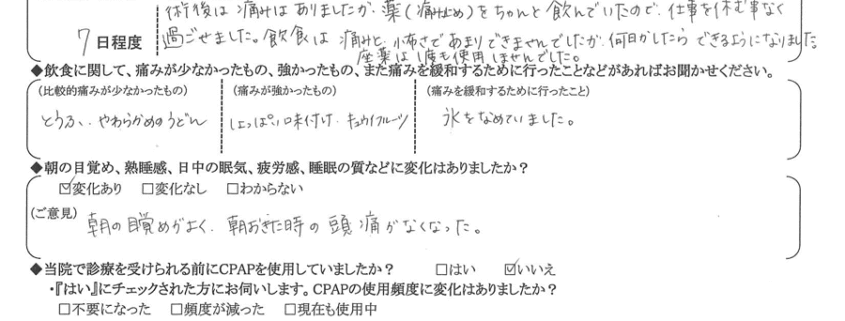 術後は痛みはありましたが、薬(痛み止め)をちゃんと飲んでいたので、仕事を休む事なく
7日程度 過ごせました。飲食は痛みと怖さであまりできませんでしたが、何日かしたらできるようになりました
座薬は1度も使用しませんでした。
◆飲食に関して、痛みが少なかったもの、強かったもの、また痛みを緩和するために行ったことなどがあればお聞かせください。
(比較的痛みが少なかったもの) (痛みが強かったもの) (痛みを緩和するために行ったこと)
とうふ、やわらかめのうどん しょっぱい味付け、キュウイフルーツ 氷をなめていました。
◆朝の目覚め、熟睡感、日中の眠気、疲労感、睡眠の質などに変化はありましたか?
☑変化あり □変化なし □わからない
(ご意見) 朝の目覚めがよく、朝おきた時の頭痛がなくなった。
◆当院で診療を受けられる前にCPAPを使用していましたか? □はい ☑いいえ
・『はい』にチェックされた方にお伺いします。CPAPの使用頻度に変化はありましたか?
□不要になった □頻度が減った □現在も使用中